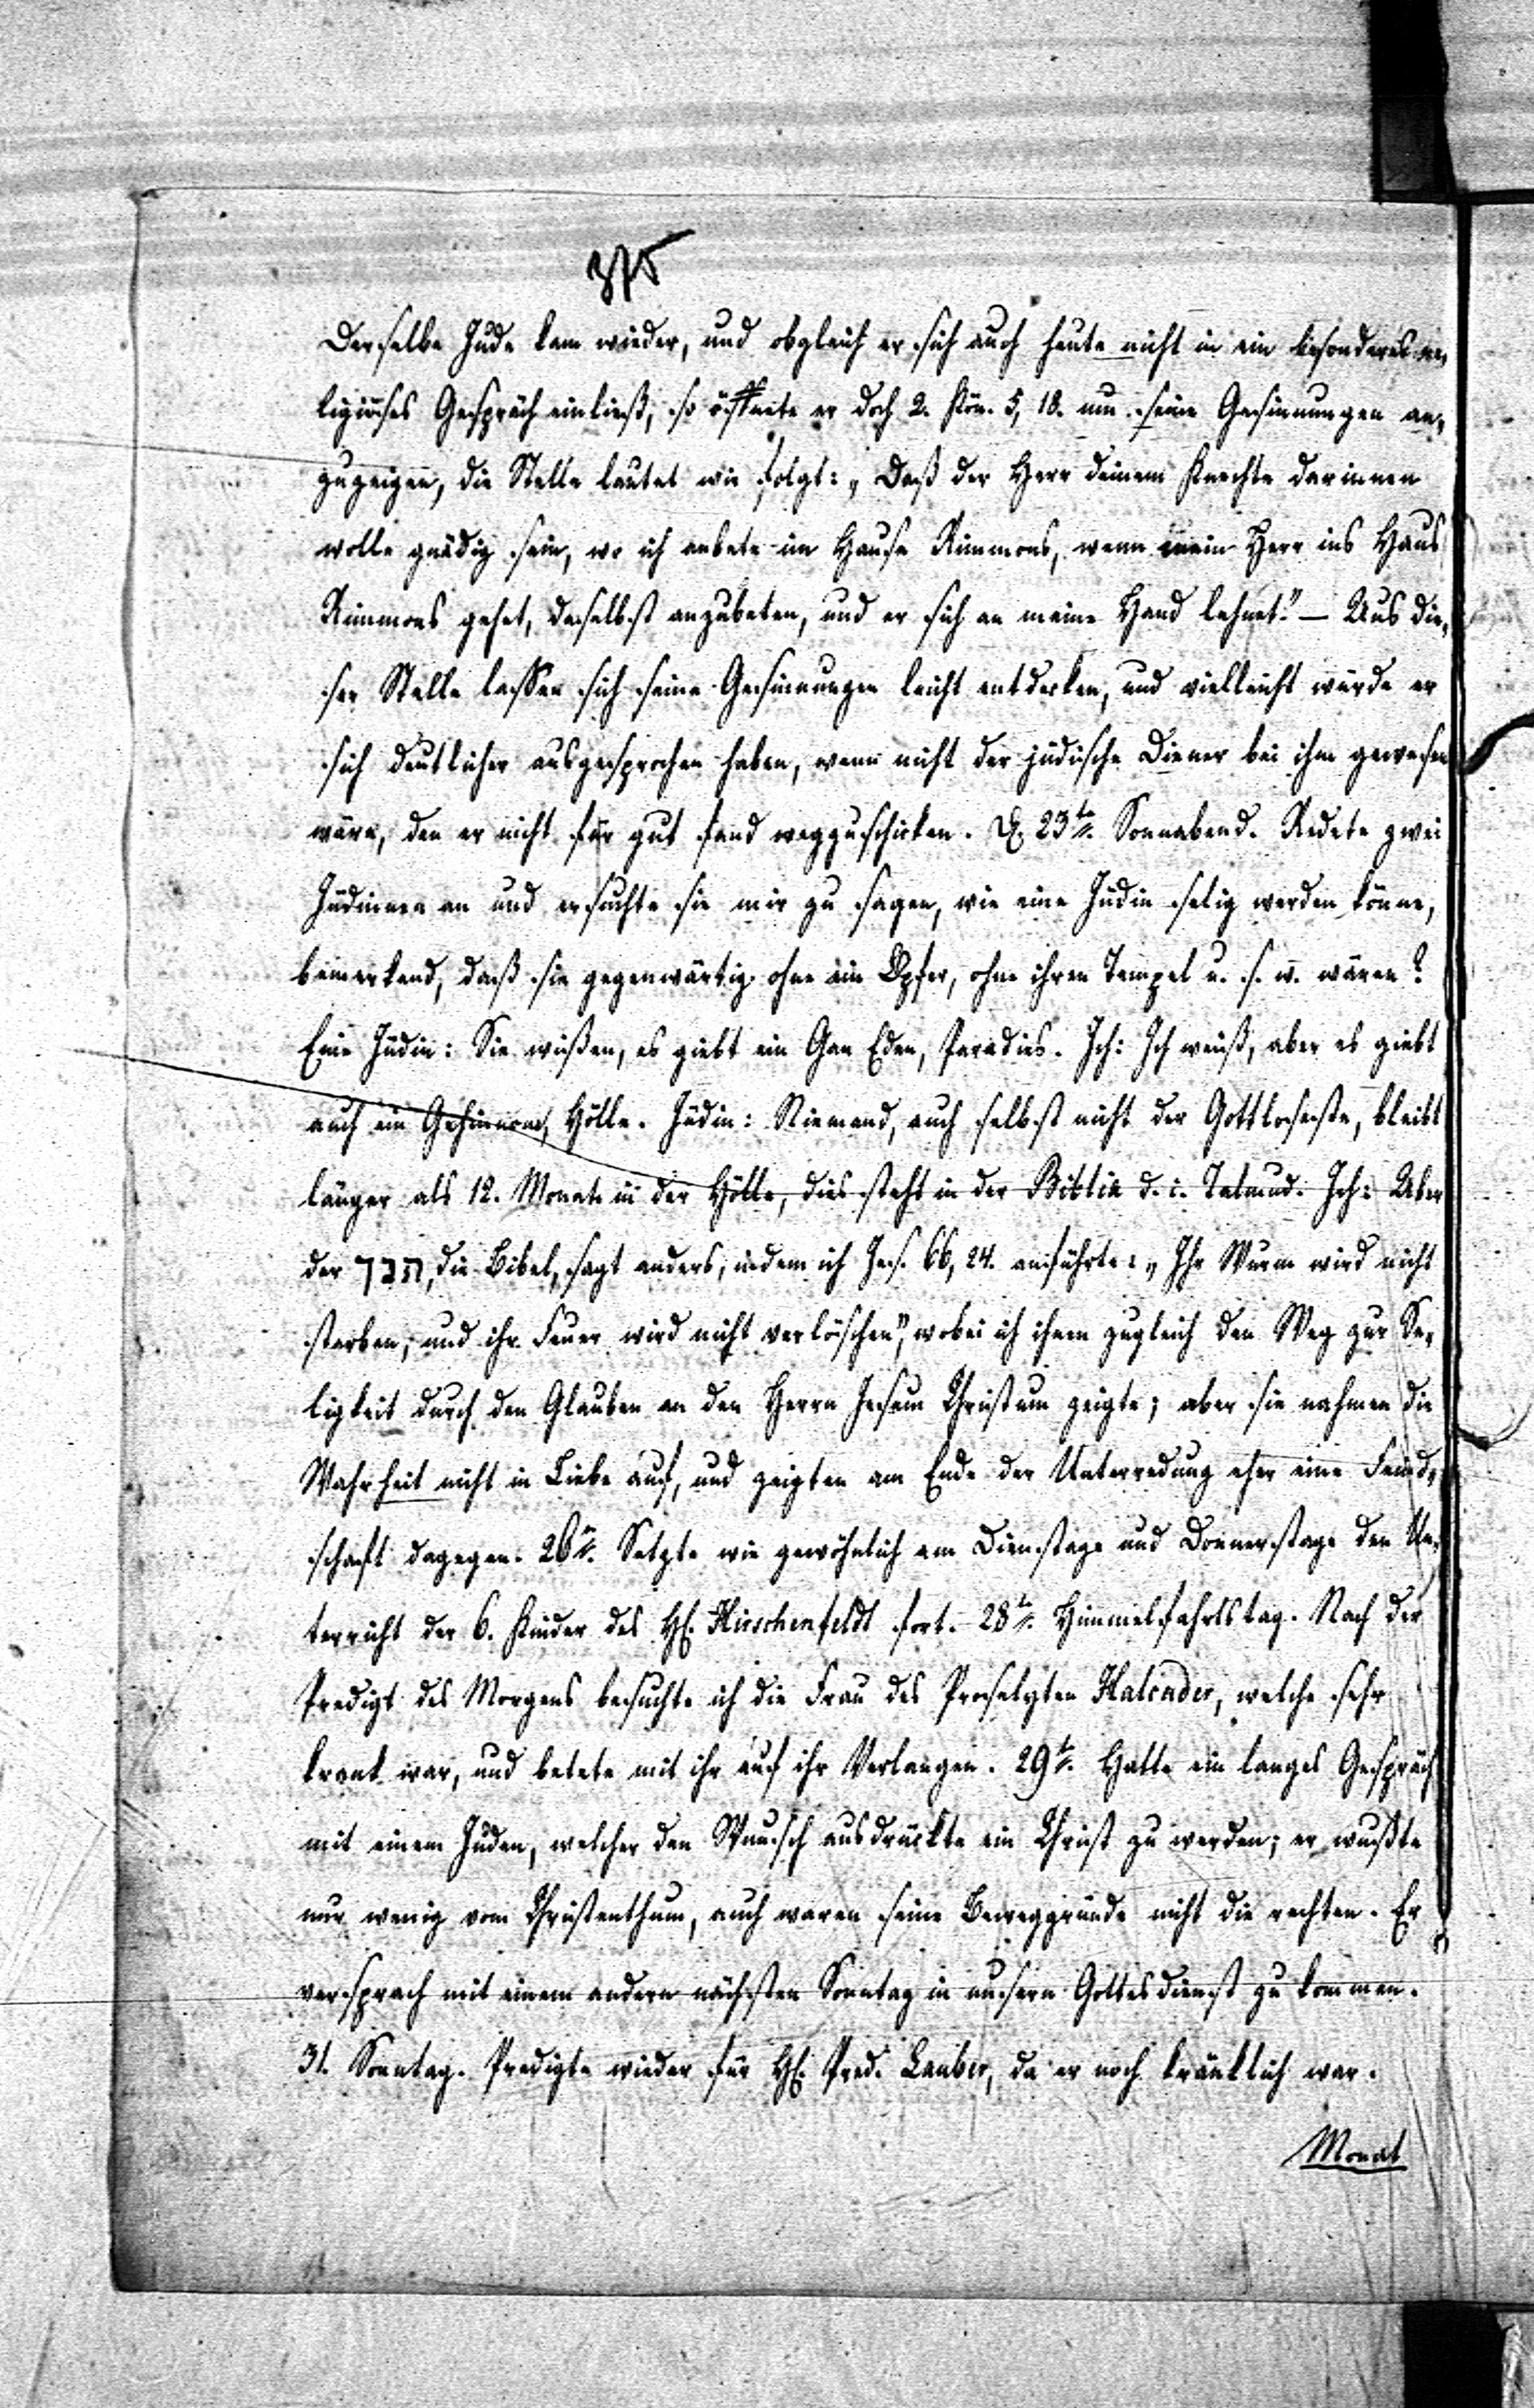 375
Derselbe Jude kam wieder, und obgleich er sich auch heute nicht in ein besonderes re„
ligiöses Gespräch einließ, so öffnete er doch 2. Kön. 5, 18. um seine Gesinnungen an„
zuzeigen, die Stelle lautet wie folgt: „Daß der Herr deinem Knechte darinnen
wolle gnädig sein, wo ich anbete im Hause Rimmons, wenn mein Herr ins Haus
Rimmons gehet, daselbst anzubeten, und er sich an meine Hand lehnet.“ — Aus die„
ser Stelle lassen sich seine Gesinnungen leicht entdecken, und vielleicht würde er
sich deutlicher ausgesprochen haben, wenn nicht der jüdische Diener bei ihm gewesen
wäre, den er nicht für gut fand wegzuschicken. D. 23te. Sonnabend. Redete zwei
Jüdinnen an und ersuchte sie mir zu sagen, wie eine Jüdin selig werden könne,
bemerkend, daß sie gegenwärtig ohne ein Opfer, ohne ihren Tempel u. s. w. wären?
Eine Jüdin: Sie wißen, es giebt ein Gan Eden, Paradies. Ich: Ich weiß, aber es giebt
auch ein Gehinnom, Hölle. Jüdin: Niemand, auch selbst nicht der Gottloseste, bleibt
länger als 12. Monate in der Hölle, dies steht in der Biblia d. i. Talmud. Ich: Aber
der תנך, die Bibel, sagt anders, indem ich Jes. 66, 24. anführte: „Ihr Wurm wird nicht
sterben, und ihr Feuer wird nicht verlöschen“, wobei ich ihnen zugleich den Weg zur Se„
ligkeit durch den Glauben an den Herrn Jesum Christum zeigte; aber sie nahmen die
Wahrheit nicht in Liebe auf, und zeigten am Ende der Unterredung eher eine Feind„
schaft dagegen. 26te. Setzte wie gewöhnlich am Dienstage und Donnerstage den Un„
terricht der 6. Kinder des H. Hirschenfeldt fort. 28te. Himmelfahrtstag. Nach der
Predigt des Morgens besuchte ich die Frau des Proselyten Kalender, welche sehr
krank war, und betete mit ihr auf ihr Verlangen. 29te. Hatte ein langes Gespräch
mit einem Juden, welcher den Wunsch ausdrückte ein Christ zu werden; er wußte
nur wenig vom Christenthum, auch waren seine Beweggründe nicht die rechten. Er
versprach mit einem andern nächsten Sonntag in unsern Gottesdienst zu kommen.
31. Sonntag. Predigte wieder für H. Pred. Lauber, da er noch kränklich war.
Monat